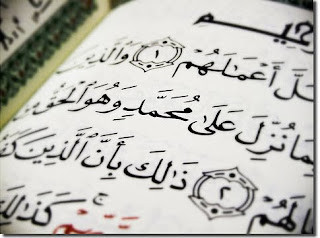 حِيمِ
ـلَّ أَعْمَـٰلَهُمْ ١ وَٱلَّذِينَ
بِمَا نُزِّلَ عَلَىٰ مُحَمَّدٍ وَهُوَ ٱلْحَقُّ مِن
ـالَهُمْ ٢ ذَٰلِكَ بِأَنَّ ٱلَّذِينَ كَفَـ
كَذَٰلِكَ